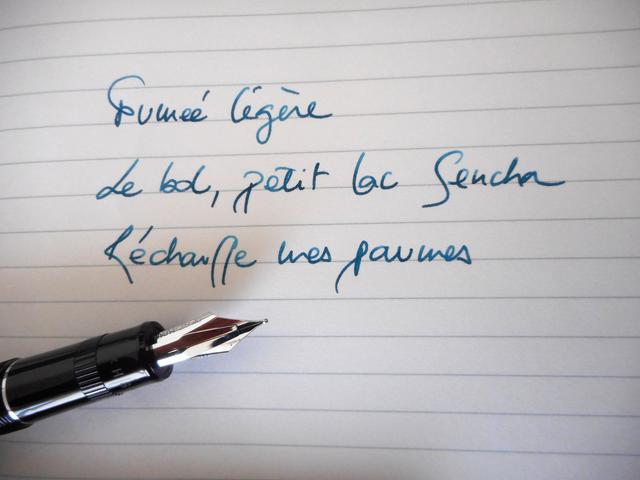 Fumeé légère
Le bol, petit lac Sencha
Réchauffe mes paumes